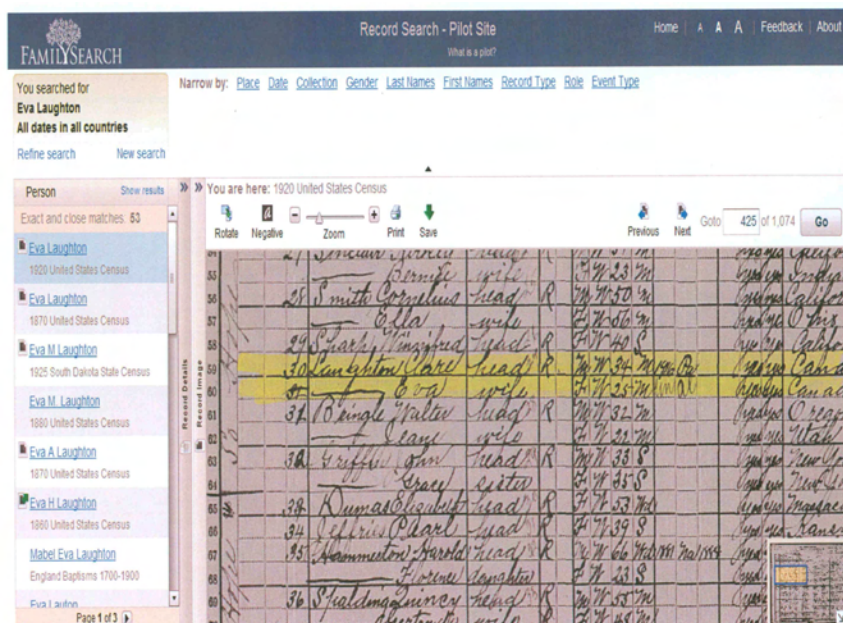 FAMILYSEARCH
Record Search - Pilot Site
What is a pilot?
Home | A A A | Feedback | About
You searched for
Eva Laughton
All dates in all countries
Refine search New search
Narrow by: Place Date Collection Gender Last Names First Names Record Type Role Event Type
Person Show results
Exact and close matches. 53
Eva Laughton
1920 United States Census
Eva Laughton
1870 United States Census
Eva M Laughton
1925 South Dakota State Census
Eva M. Laughton
1880 United States Census
Eva A Laughton
1870 United States Census
Eva H Laughton
1860 United States Census
Mabel Eva Laughton
England Baptisms 1700-1900
Eva Lauton
Page 1 of 3
Record Details
Record Image
You are here: 1920 United States Census
Rotate Negative Zoom Print Save
Previous Next Goto 425 of 1,074 Go
Bernice wife F W 23 M India
56 28 Smith Cornelius head R M W 50 M Califor
57 Ella wife F W 56 M
58 29 Sharp Winnifred head R F W 40 S Califo
59 30 Laughton Clare head R M W 34 M Cana
60 Eva wife F W 25 M Canad
61 31 Beingle Walter head R M W 32 M Orego
62 Jeane wife F W 22 M Utah
63 32 Griffin John head R M W 33 S New Yo
64 Grace sister F W 35 S
65 33 Dumas Elizabeth head R F W 53 Wd
66 34 Jeffries Pearl head R F W 39 S Kansa
67 35 Hammerton Harold head R M W 66
68 Florence daughter F W 23 S
69 36 Spalding Quincy head R M W 55 M
wife F W 48 M